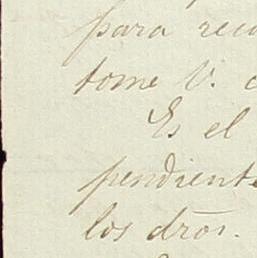 para
tome V.
Es el
pendient
los drōs.